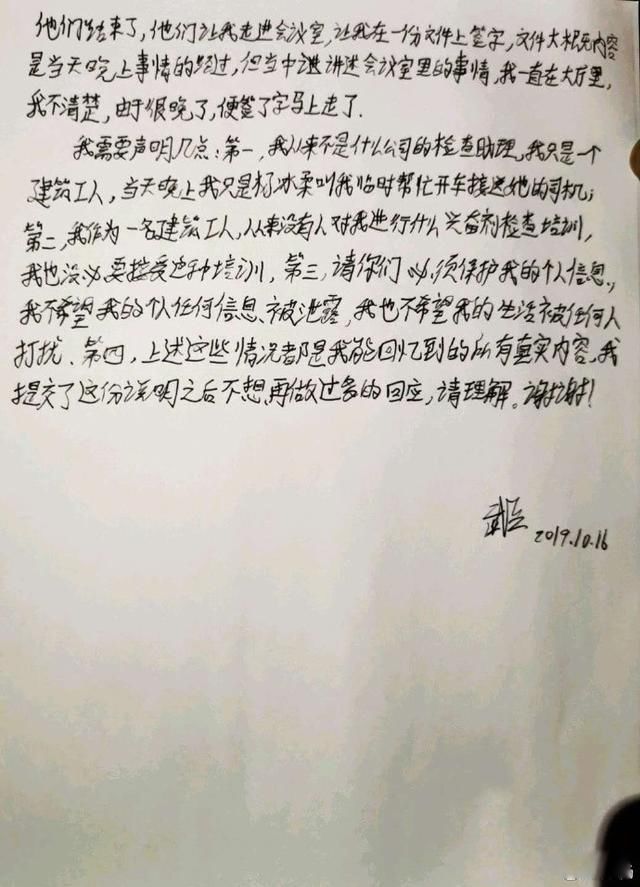 他们结束了，他们让我走进会议室，让我在一份文件上签字，文件大概内容
是当天晚上事情的经过，但当中进讲述会议室里的事情，我一直在大厅里，
我不清楚，由于很晚了，便签了字马上走了．
我需要声明几点：第一，我从来不是什么公司的检查助理，我只是一个
建筑工人，当天晚上我只是杨冰柔叫我临时帮忙开车接送她的司机；
第二，我作为一名建筑工人，从来没有人对我进行什么兴奋剂检查培训，
我也没必要接受这种培训，第三，请你们必须保护我的个人信息，
我不希望我的个人任何信息被泄露，我也不希望我的生活被任何人
打扰．第四，上述这些情况都是我能回忆到的所有真实内容，我
提交了这份说明之后不想再做过多的回应，请理解。谢谢！
2019.10.16